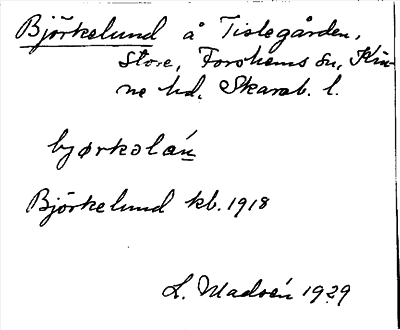 Björkelund å Tislegården,
Store, Forshems sn, Kin-
ne hd. Skarab. l.
bjørkəlún
Björkelund kb. 1918
L. Madsén 1929